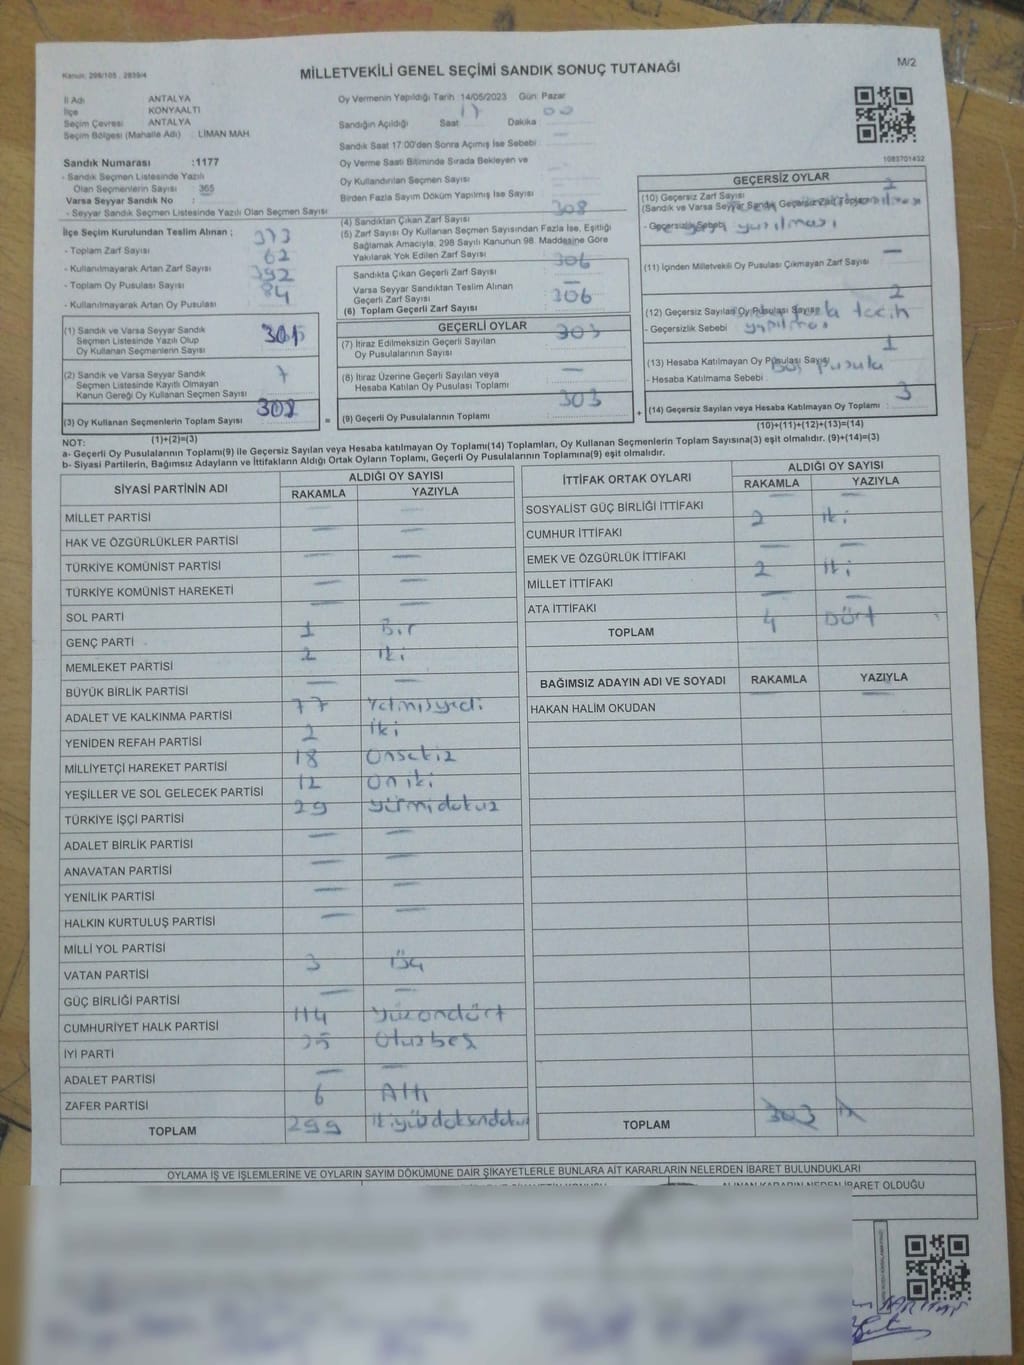 Kanun: 298/105 , 2839/4
M/2
MİLLETVEKİLİ GENEL SEÇİMİ SANDIK SONUÇ TUTANAĞI
İl Adı ANTALYA
İlçe KONYAALTI
Seçim Çevresi ANTALYA
Seçim Bölgesi (Mahalle Adı) : LİMAN MAH.
Sandık Numarası :1177
- Sandık Seçmen Listesinde Yazılı
Olan Seçmenlerin Sayısı : 365
Varsa Seyyar Sandık No :
- Seyyar Sandık Seçmen Listesinde Yazılı Olan Seçmen Sayısı
İlçe Seçim Kurulundan Teslim Alınan ;
- Toplam Zarf Sayısı 373
- Kullanılmayarak Artan Zarf Sayısı 62
- Toplam Oy Pusulası Sayısı 392
- Kullanılmayarak Artan Oy Pusulası 84
(1) Sandık ve Varsa Seyyar Sandık
Seçmen Listesinde Yazılı Olup
Oy Kullanan Seçmenlerin Sayısı
(2) Sandık ve Varsa Seyyar Sandık
Seçmen Listesinde Kayıtlı Olmayan
Kanun Gereği Oy Kullanan Seçmen Sayısı 7
(3) Oy Kullanan Seçmenlerin Toplam Sayısı
Oy Vermenin Yapıldığı Tarih :14/05/2023 Gün: Pazar
Sandığın Açıldığı Saat 17 Dakika 00
Sandık Saat 17:00'den Sonra Açımış İse Sebebi —
Oy Verme Saati Bitiminde Sırada Bekleyen ve
Oy Kullandırılan Seçmen Sayısı —
Birden Fazla Sayım Döküm Yapılmış İse Sayısı —
(4) Sandıktan Çıkan Zarf Sayısı 308
(5) Zarf Sayısı Oy Kullanan Seçmen Sayısından Fazla İse, Eşitliği
Sağlamak Amacıyla, 298 Sayılı Kanunun 98. Maddesine Göre
Yakılarak Yok Edilen Zarf Sayısı —
Sandıkta Çıkan Geçerli Zarf Sayısı 306
Varsa Seyyar Sandıktan Teslim Alınan
Geçerli Zarf Sayısı —
(6) Toplam Geçerli Zarf Sayısı 306
GEÇERLİ OYLAR
(7) İtiraz Edilmeksizin Geçerli Sayılan
Oy Pusulalarının Sayısı 303
(8) İtiraz Üzerine Geçerli Sayılan veya
Hesaba Katılan Oy Pusulası Toplamı —
= (9) Geçerli Oy Pusulalarının Toplamı 303
1083701432
GEÇERSİZ OYLAR
(10) Geçersiz Zarf Sayısı
(Sandık ve Varsa Seyyar Sandık Geçersiz Zarf Toplamı)
- Geçersizlik Sebebi yazılması
(11) İçinden Milletvekili Oy Pusulası Çıkmayan Zarf Sayısı —
(12) Geçersiz Sayılan Oy Pusulası Sayısı 2
- Geçersizlik Sebebi tecih yapılması
(13) Hesaba Katılmayan Oy Pusulası Sayısı 1
- Hesaba Katılmama Sebebi Boş pusula
+ (14) Geçersiz Sayılan veya Hesaba Katılmayan Oy Toplamı : 3
(1)+(2)=(3)
(10)+(11)+(12)+(13)=(14)
NOT:
a- Geçerli Oy Pusulalarının Toplamı(9) ile Geçersiz Sayılan veya Hesaba katılmayan Oy Toplamı(14) Toplamları, Oy Kullanan Seçmenlerin Toplam Sayısına(3) eşit olmalıdır. (9)+(14)=(3)
b- Siyasi Partilerin, Bağımsız Adayların ve İttifakların Aldığı Ortak Oyların Toplamı, Geçerli Oy Pusulalarının Toplamına(9) eşit olmalıdır.
SİYASİ PARTİNİN ADI ALDIĞI OY SAYISI
RAKAMLA YAZIYLA
MİLLET PARTİSİ — —
HAK VE ÖZGÜRLÜKLER PARTİSİ — —
TÜRKİYE KOMÜNİST PARTİSİ — —
TÜRKİYE KOMÜNİST HAREKETİ — —
SOL PARTİ — —
GENÇ PARTİ 1 Bir
MEMLEKET PARTİSİ 2 iki
BÜYÜK BİRLİK PARTİSİ — —
ADALET VE KALKINMA PARTİSİ 77 Yetmişyedi
YENİDEN REFAH PARTİSİ 2 iki
MİLLİYETÇİ HAREKET PARTİSİ 18 Onsekiz
YEŞİLLER VE SOL GELECEK PARTİSİ 12 Oniki
TÜRKİYE İŞÇİ PARTİSİ 29 yirmidokuz
ADALET BİRLİK PARTİSİ — —
ANAVATAN PARTİSİ — —
YENİLİK PARTİSİ — —
HALKIN KURTULUŞ PARTİSİ — —
MİLLİ YOL PARTİSİ
VATAN PARTİSİ 3 üç
GÜÇ BİRLİĞİ PARTİSİ — —
CUMHURİYET HALK PARTİSİ 114 yüzondört
İYİ PARTİ 35 Otuzbeş
ADALET PARTİSİ — —
ZAFER PARTİSİ 6 Altı
TOPLAM 299 ikiyüzdoksandokuz
İTTİFAK ORTAK OYLARI ALDIĞI OY SAYISI
RAKAMLA YAZIYLA
SOSYALİST GÜÇ BİRLİĞİ İTTİFAKI — —
CUMHUR İTTİFAKI 2 iki
EMEK VE ÖZGÜRLÜK İTTİFAKI — —
MİLLET İTTİFAKI 2 iki
ATA İTTİFAKI — —
TOPLAM 4 Dört
BAĞIMSIZ ADAYIN ADI VE SOYADI RAKAMLA YAZIYLA
HAKAN HALİM OKUDAN — —
TOPLAM 303
OYLAMA İŞ VE İŞLEMLERİNE VE OYLARIN SAYIM DÖKÜMÜNE DAİR ŞİKAYETLERLE BUNLARA AİT KARARLARIN NELERDEN İBARET BULUNDUKLARI
ALINAN KARARIN NEDEN İBARET OLDUĞU